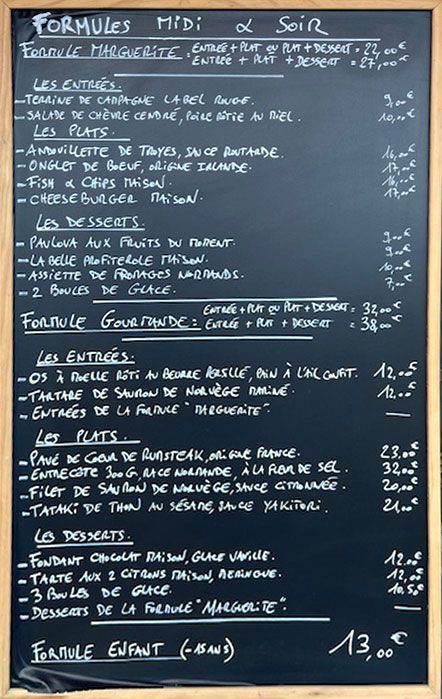 FORMULES MIDI & SOIR
FORMULE MARGUERITE : ENTRÉE + PLAT OU PLAT + DESSERT = 22,00€
ENTRÉE + PLAT + DESSERT = 27,00€
LES ENTRÉES.
- TERRINE DE CAMPAGNE LABEL ROUGE. 9,00€
- SALADE DE CHÈVRE CENDRÉ, POIRE RÔTIE AU MIEL. 10,00€
LES PLATS.
- ANDOUILLETTE DE TROYES, SAUCE MOUTARDE. 16,00€
- ONGLET DE BOEUF, ORIGINE IRLANDE. 17,00€
- FISH & CHIPS MAISON. 16,00€
- CHEESEBURGER MAISON. 17,00€
LES DESSERTS.
- PAVLOVA AUX FRUITS DU MOMENT. 9,00€
- LA BELLE PROFITEROLE MAISON. 9,00€
- ASSIETTE DE FROMAGES NORMANDS. 10,00€
- 2 BOULES DE GLACE. 7,00€
FORMULE GOURMANDE : ENTRÉE + PLAT OU PLAT + DESSERT = 32,00€
ENTRÉE + PLAT + DESSERT = 38,00€
LES ENTRÉES.
- OS À MOELLE RÔTI AU BEURRE PERSILLÉ, PAIN À L'AIL CONFIT. 12,00€
- TARTARE DE SAUMON DE NORVÈGE MARINÉ. 12,00€
- ENTRÉES DE LA FORMULE "MARGUERITE". —
LES PLATS.
- PAVÉ DE COEUR DE RUMSTEAK, ORIGINE FRANCE. 23,00€
- ENTRECÔTE 300 G. RACE NORMANDE, À LA FLEUR DE SEL. 32,00€
- FILET DE SAUMON DE NORVÈGE, SAUCE CITRONNÉE. 20,00€
- TATAKI DE THON AU SÉSAME, SAUCE YAKITORI. 21,00€
LES DESSERTS.
- FONDANT CHOCOLAT MAISON, GLACE VANILLE. 12,00€
- TARTE AUX 2 CITRONS MAISON, MERINGUE. 12,00€
- 3 BOULES DE GLACE. 10,50€
- DESSERTS DE LA FORMULE "MARGUERITE". —
FORMULE ENFANT (-15 ANS) 13,00€